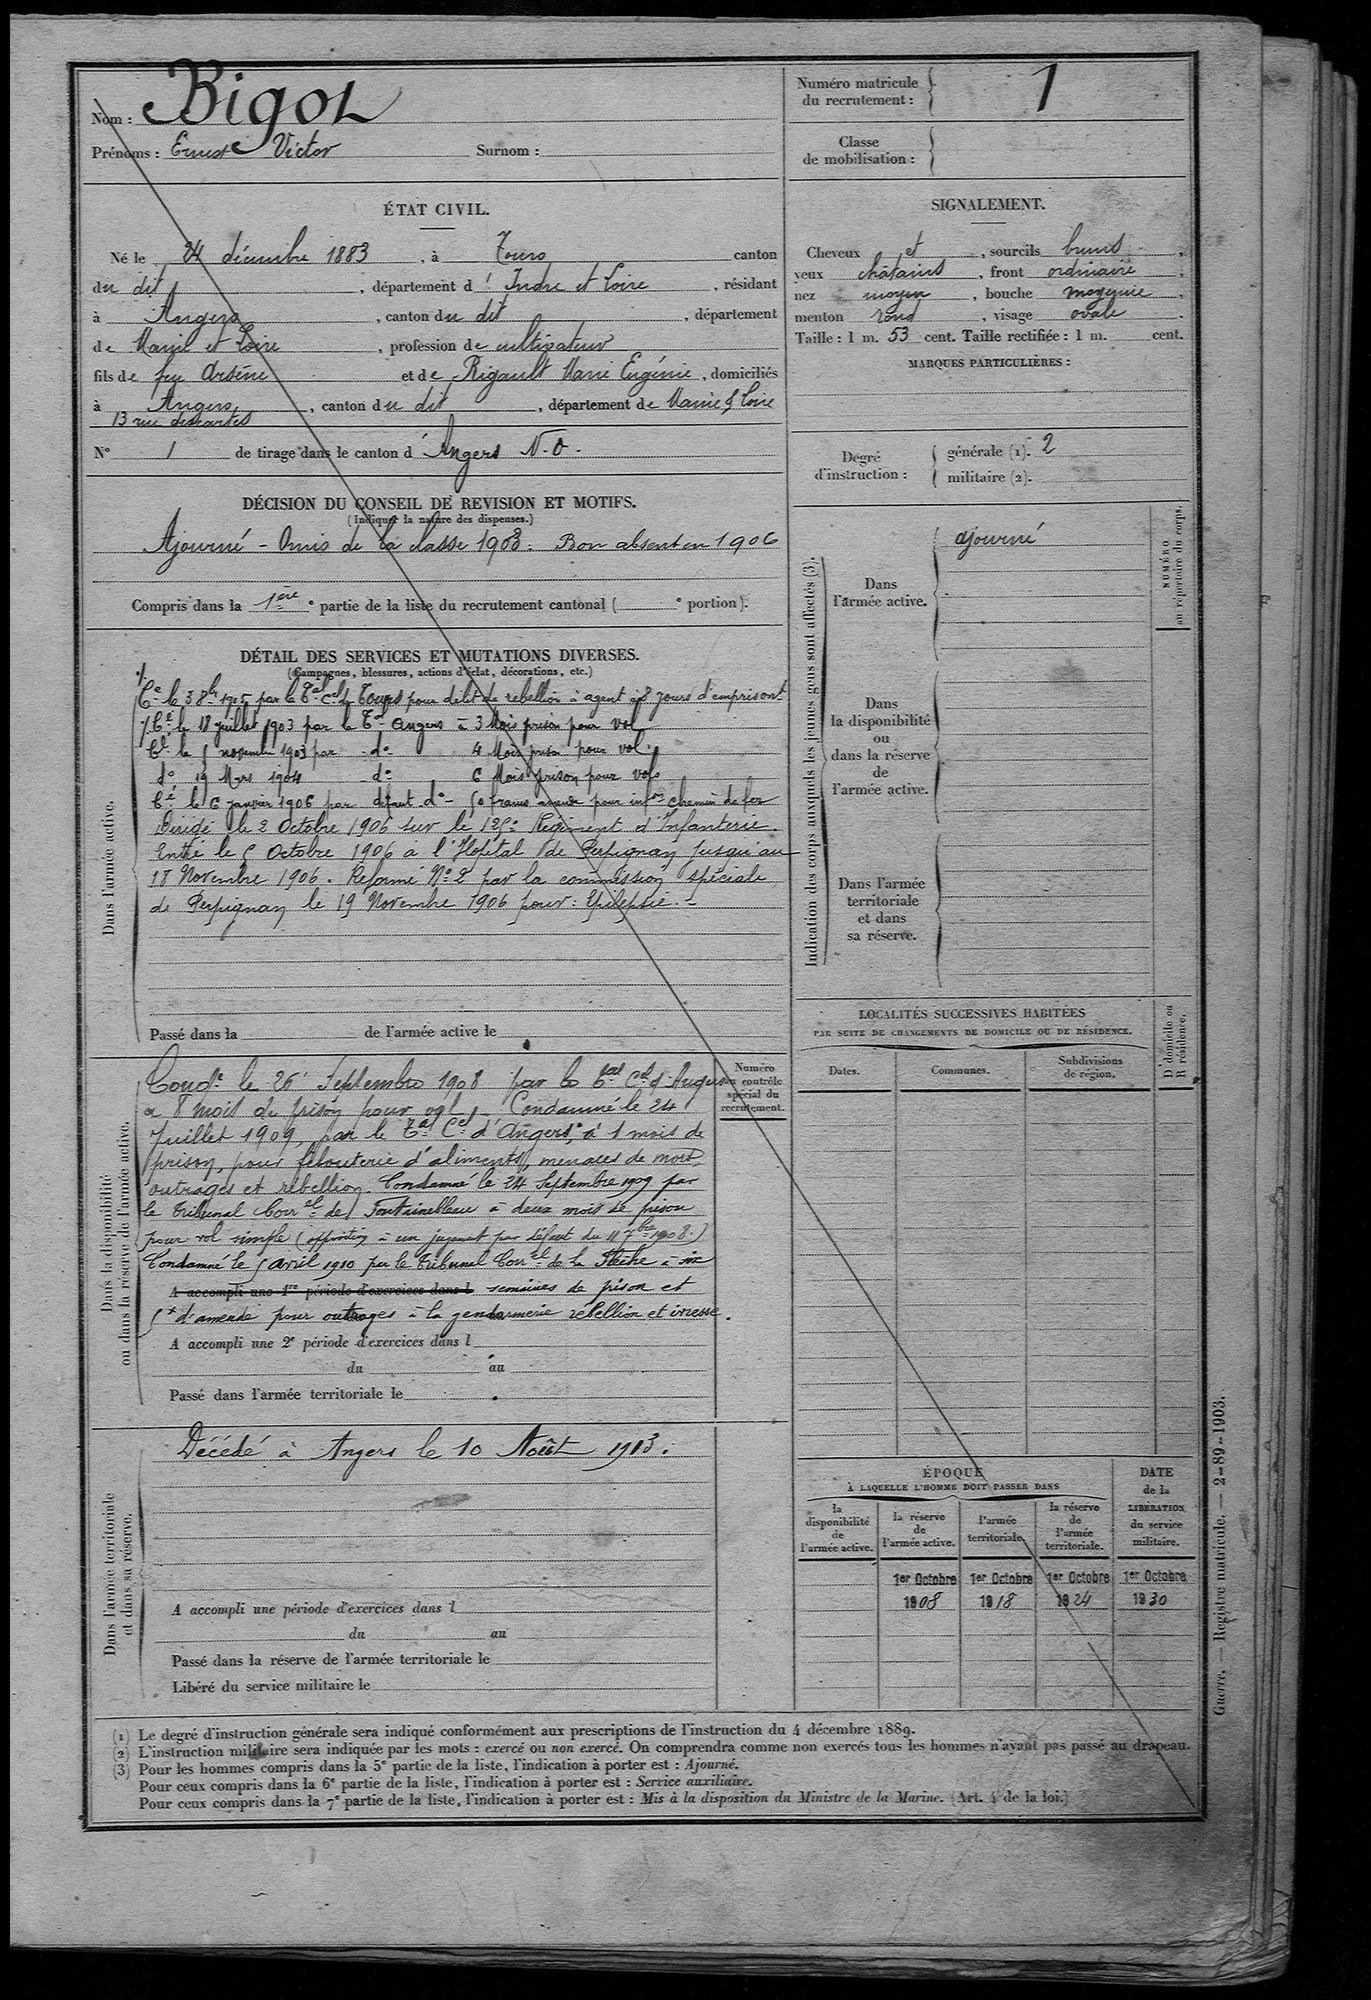 Nom : Bigot
Prénoms : Ernest Victor Surnom :
Numéro matricule du recrutement : 1
Classe de mobilisation :
ÉTAT CIVIL.
Né le 24 décembre 1883, à Tours canton
du dit, département d'Indre et Loire, résidant
à Angers, canton du dit, département
de Maine et Loire, profession de cultivateur
fils de feu Arsène et de Rigault Marie Eugénie, domiciliés
à Angers, canton du dit, département de Maine & Loire
13 rue descartes
N° 1 de tirage dans le canton d'Angers N.O.
SIGNALEMENT.
Cheveux et, sourcils bruns,
yeux châtains, front ordinaire,
nez moyen, bouche moyenne,
menton rond, visage ovale.
Taille : 1 m. 53 cent. Taille rectifiée : 1 m. cent.
MARQUES PARTICULIÈRES :
Degré d'instruction : générale (1). 2
militaire (2).
DÉCISION DU CONSEIL DE REVISION ET MOTIFS.
(Indiquer la nature des dispenses.)
Ajourné - Omis de la classe 1903. Bon absent en 1906
Compris dans la 1ère e partie de la liste du recrutement cantonal ( e portion).
DÉTAIL DES SERVICES ET MUTATIONS DIVERSES.
(Campagnes, blessures, actions d'éclat, décorations, etc.)
Dans l'armée active.
Cé le 3 8bre 1905 par le Tal Cel de Tours pour délit de rebellion à agent à 8 jours d'emprisont
Cé le 18 juillet 1903 par le Tal Angers à 3 Mois prison pour vol
Cé le 5 novembre 1903 par do 4 Mois prison pour vol.
do 19 Mars 1904 do 6 Mois prison pour vol
Cé le 6 janvier 1906 par défaut do - 50 francs amende pour infon chemin de fer
Dirigé le 2 Octobre 1906 sur le 125e Régiment d'Infanterie.
Entré le 5 Octobre 1906 à l'Hopital de Perpignan jusqu'au
18 Novembre 1906. Réformé No 2 par la commission spéciale
de Perpignan le 19 Novembre 1906 pour : Epilepsie. -
Passé dans la de l'armée active le
Dans la disponibilité ou dans la réserve de l'armée active.
Numéro au contrôle spécial du recrutement.
Condé le 26 Septembre 1908 par le Tal Cel d'Angers
à 8 mois de prison pour vol. Condamné le 24
Juillet 1909, par le Tal Cel d'Angers, à 1 mois de
prison, pour filouterie d'aliments, menaces de mort,
outrages et rebellion. Condamné le 24 Septembre 1909 par
le Tribunal Correl de Fontainebleau à deux mois de prison
pour vol simple (opposition à un jugement par défaut du 11 7bre 1908.)
Condamné le 5 avril 1910 par le Tribunal Correl de La Flèche à six
A accompli une 1re période d'exercices dans l semaines de prison et
5f d'amende pour outrages à la gendarmerie rébellion et ivresse.
A accompli une 2e période d'exercices dans l
du au
Passé dans l'armée territoriale le
Dans l'armée territoriale et dans sa réserve.
Décédé à Angers le 10 Août 1913.
A accompli une période d'exercices dans l
du au
Passé dans la réserve de l'armée territoriale le
Libéré du service militaire le
Indication des corps auxquels les jeunes gens sont affectés (3).
Dans l'armée active. ajourné
Dans la disponibilité ou dans la réserve de l'armée active.
Dans l'armée territoriale et dans sa réserve.
NUMÉRO au répertoire du corps.
LOCALITÉS SUCCESSIVES HABITÉES
PAR SUITE DE CHANGEMENTS DE DOMICILE OU DE RÉSIDENCE.
Dates. Communes. Subdivisions de région. D' domicile ou R résidence.
ÉPOQUE
À LAQUELLE L'HOMME DOIT PASSER DANS
DATE de la LIBÉRATION du service militaire.
la disponibilité de l'armée active. la réserve de l'armée active. l'armée territoriale. la réserve de l'armée territoriale.
1er Octobre 1er Octobre 1er Octobre 1er Octobre
1908 1918 1924 1930
(1) Le degré d'instruction générale sera indiqué conformément aux prescriptions de l'instruction du 4 décembre 1889.
(2) L'instruction militaire sera indiquée par les mots : exercé ou non exercé. On comprendra comme non exercés tous les hommes n'ayant pas passé au drapeau.
(3) Pour les hommes compris dans la 5e partie de la liste, l'indication à porter est : Ajourné.
Pour ceux compris dans la 6e partie de la liste, l'indication à porter est : Service auxiliaire.
Pour ceux compris dans la 7e partie de la liste, l'indication à porter est : Mis à la disposition du Ministre de la Marine. (Art. 4 de la loi.)
Guerre. — Registre matricule. — 2-89-1903.